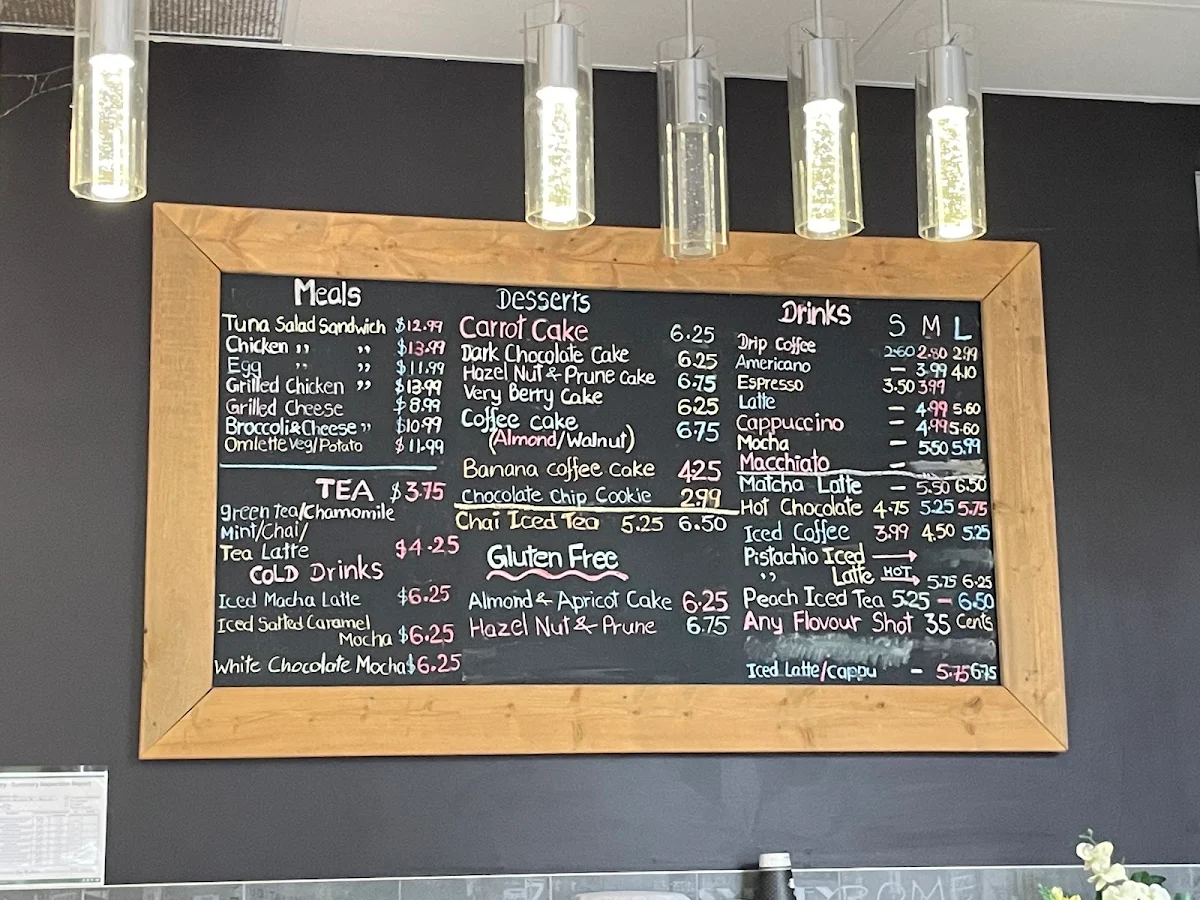 Meals
Tuna Salad Sandwich $12.99
Chicken " " $13.99
Egg " " $11.99
Grilled Chicken " $13.99
Grilled Cheese $8.99
Broccoli & Cheese " $10.99
Omlette Veg/Potato $11.99
TEA $3.75
green tea/Chamomile
Mint/Chai/
Tea Latte $4.25
COLD Drinks
Iced Macha Latte $6.25
Iced Salted Caramel
Mocha $6.25
White Chocolate Mocha $6.25
Desserts
Carrot Cake 6.25
Dark Chocolate Cake 6.25
Hazel Nut & Prune Cake 6.75
Very Berry Cake 6.25
Coffee cake 6.75
(Almond/Walnut)
Banana coffee cake 4.25
Chocolate Chip Cookie 2.99
Chai Iced Tea 5.25 6.50
Gluten Free
Almond & Apricot Cake 6.25
Hazel Nut & Prune 6.75
Drinks S M L
Drip Coffee 2.60 2.80 2.99
Americano - 3.99 4.10
Espresso 3.50 3.99
Latte - 4.99 5.60
Cappuccino - 4.99 5.60
Mocha - 5.50 5.99
Macchiato -
Matcha Latte - 5.50 6.50
Hot Chocolate 4.75 5.25 5.75
Iced Coffee 3.99 4.50 5.25
Pistachio Iced →
" Latte HOT → 5.75 6.25
Peach Iced Tea 5.25 - 6.50
Any Flavour Shot 35 cents
Iced Latte/cappu - 5.75 6.75